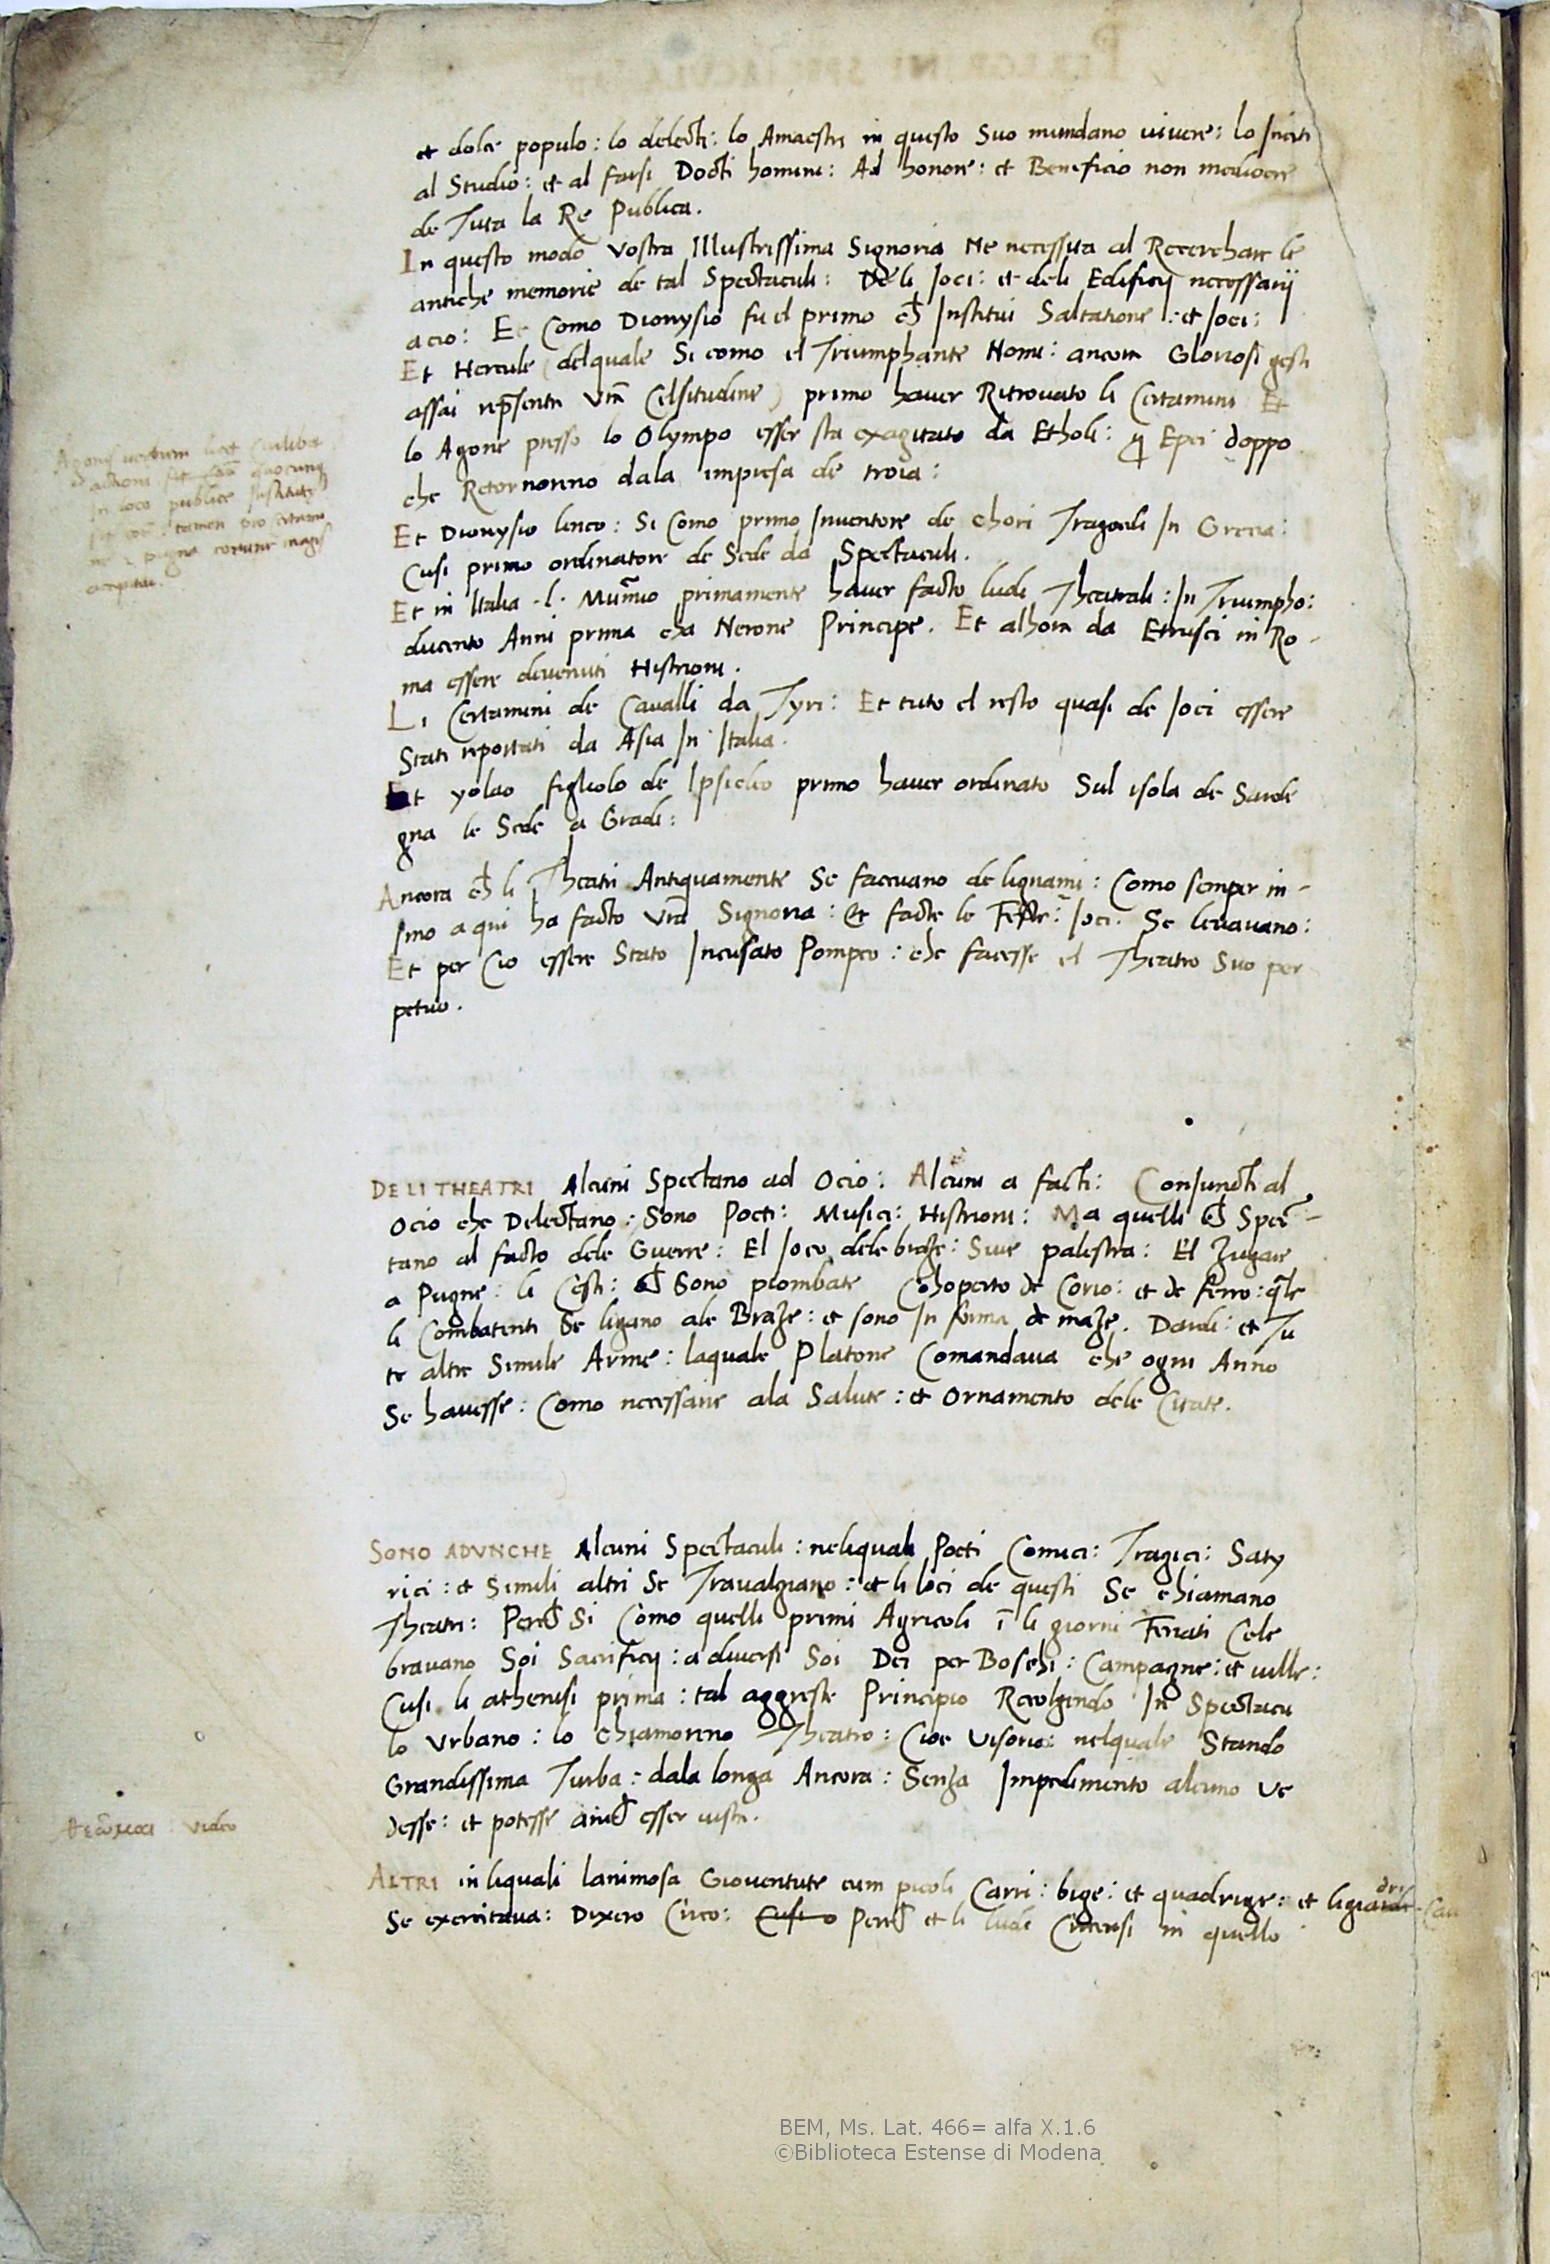 et dolce populo: lo delecti: lo Amaestri in questo Suo mundano uiuere: lo Inciti
al Studio: et al farsi Docti homini: Ad honore: et Beneficio non mediocre
de Tuta la Re Publica.
In questo modo Vostra Illustrissima Signoria Me necessita al Recerchare le
antiche memorie de tal Spectaculi: De li Joci: et deli Edificij necessarij
acio: Et Como Dionysio fu el primo ch̄ Institui Saltatione: et Joci:
Et Hercule (delquale Si como el Triumphante Nome: ancora Gloriosi gesti
assai rep̄senta Vr̄a Celsitudine) primo hauer Ritrouato li Certamini Et
lo Agone presso lo Olympo esser sta exagitato da Etholi: Epei doppo
che Retornorno dala impresa de troia:
Et Dionysio leneo: Si Como primo Inuentore de Chori Tragoedi In Grecia:
Cusi primo ordinatore de Sede da Spectaculi.
Et in Italia .l. Mum̄io primamente hauer facto ludi Theatrali: In Triumpho:
ducento Anni prima cha Nerone Principe. Et alhora da Etrusci in Ro-
ma essere diuenuti Histrioni.
Li Certamini de Caualli da Tyri: Et tuto el resto quasi de Joci essere
Stati reportati da Asia In Italia.
Et yolao figliolo de Ipsicleo primo hauer ordinato Sul isola de Sarde
gna le Sede a Gradi:
Ancora ch̄ li Theatri Antiquamente Se faceuano de lignami: Como semper in-
sino a qui ha facto Vr̄a Signoria: Et facte le Feste: Joci. Se leuauano:
Et per Cio essere Stato Incusato Pompeo: che facesse el Theatro Suo per
petuo.
DE LI THEATRI Alcuni Spectano ad Ocio: Alcuni a facti: Coniuncti al
Ocio che Delectano: Sono Poeti: Musici: Histrioni: Ma quelli ch̄ Spec-
tano al facto dele Guerre: El Joco dele braze: Siue palestra: El Zugare
a Pugne: li Cesti: ch̄ Sono piombate Cohoperto de Corio: et de ferro: q̄le
li Combatenti Se ligano ale Braze: et sono In forma de maze. Dardi: et Tu
te altre Simile Arme: laquale Platone Comandaua che ogni Anno
Se hauesse: Como necessarie ala Salute: et Ornamento dele Citate.
SONO ADVNCHE Alcuni Spectaculi: neliquali Poeti Comici: Tragici: Saty
rici: et Simili altri Se Traualgiano: et li loci de questi Se chiamano
Theatri: Perch̄ Si Como quelli primi Agricoli ī li giorni Feriati Cele
brauano Soi Sacrificij: a diuersi Soi Dei per Boschi: Campagne: et uille:
Cusi li athenesi prima: tal aggreste Principio Recolgendo In Spectacu
lo Vrbano: lo Chiamorno Theatro: Cioe Visorio: nelquale Stando
Grandissima Turba: dala longa Ancora: Senza Impedimento alcuno Ve
desse: et potesse anch̄ esser uista.
θεωμαι: video
ALTRI in liquali lanimosa Giouentute cum picoli Carri: bige: et quadrige: et
Se exercitaua: Dixero Circo: Cusi o Perch̄ et li ludi Circensi in quello
BEM, Ms. Lat. 466= alfa X.1.6
©Biblioteca Estense di Modena